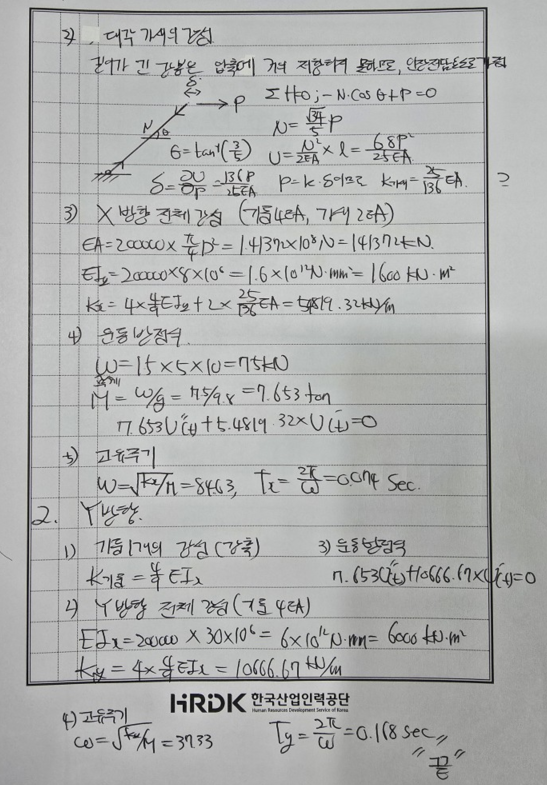 2) 대각 가새의 강성
길이가 긴 강봉은 압축에 거의 저항하지 못하므로, 인장전담으로 가정
δ
P
ΣH=0 ; -N·Cos θ+P=0
N
θ
N=√34/5 P
θ=tan⁻¹(3/5)
U=N²/2EA × l = 6.8P²/25EA
δ=∂U/∂P=136P/25EA
P=k·δ이므로 K가새=25/136 EA.
?
3) X 방향 전체 강성 (기둥4EA, 가새 2EA)
EA=200000×π/4 D²=1.41372×10⁸N=141372kN.
EIy=200000×8×10⁶=1.6×10¹²N·mm²=1600 kN·m²
Kx=4×EIy+2×25/136 EA=54819.32kN/m
4) 운동 방정식
W=15×5×10=75kN
M=W/g=75/9.8=7.653 ton
7.653Ü(t)+54819.32×U(t)=0
5) 고유주기
ω=√Kx/M=84.63, Tx=2π/ω=0.074 Sec.
2. Y방향.
1) 기둥1개의 강성 (강축)
K기둥= EIx
3) 운동방정식
7.653Ü(t)+10666.67×U(t)=0
2) Y방향 전체 강성 (기둥 4EA)
EIx=200000×30×10⁶=6×10¹²N·mm²=6000 kN·m²
Ky=4× EIx=10666.67 kN/m
HRDK 한국산업인력공단
Human Resources Development Service of Korea
4) 고유주기
ω=√Kx/M=37.33
Ty=2π/ω=0.168 sec,,
"끝"